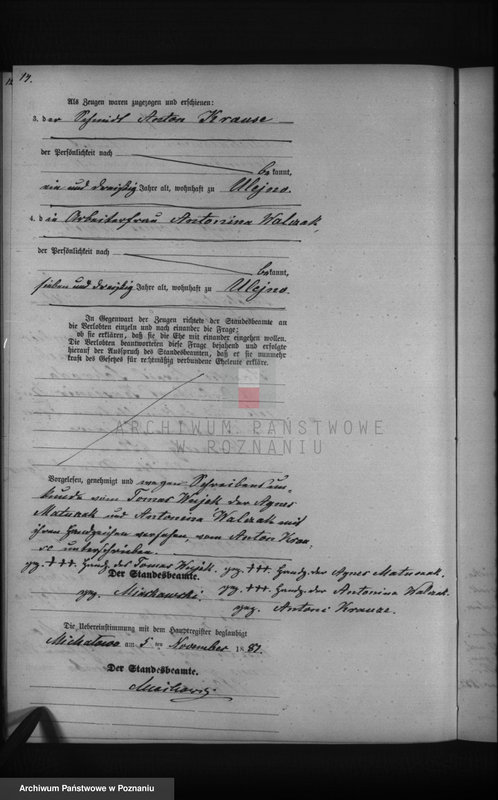 14.
Als Zeugen waren zugezogen und erschienen:
3. der Schmidt Anton Krause
der Persönlichkeit nach
bekannt,
ein und dreißig Jahre alt, wohnhaft zu Ulejno.
4. die Arbeiterfrau Antonina Walczak,
der Persönlichkeit nach
bekannt,
sieben und dreißig Jahre alt, wohnhaft zu Ulejno.
In Gegenwart der Zeugen richtete der Standesbeamte an
die Verlobten einzeln und nach einander die Frage:
ob sie erklären, daß sie die Ehe mit einander eingehen wollen.
Die Verlobten beantworteten diese Frage bejahend und erfolgte
hierauf der Ausspruch des Standesbeamten, daß er sie nunmehr
kraft des Gesetzes für rechtmäßig verbundene Eheleute erkläre.
ARCHIWUM PAŃSTWOWE
W POZNANIU
Vorgelesen, genehmigt und wegen Schreibensun-
kunde vom Tomas, der Agnes
Matuszak und Antonina Walczak mit
ihren Handzeichen versehen, vom Anton Krau-
se unterschrieben.
gez. +++ Handz. des Tomas. gez. +++ Handz. der Agnes Matuszak.
Der Standesbeamte. gez. +++ Handz. der Antonina Walczak.
gez.
gez. Antoni Krauze.
Die Uebereinstimmung mit dem Hauptregister beglaubigt
am 5 ten November 1881.
Der Standesbeamte.
Archiwum Państwowe w Poznaniu